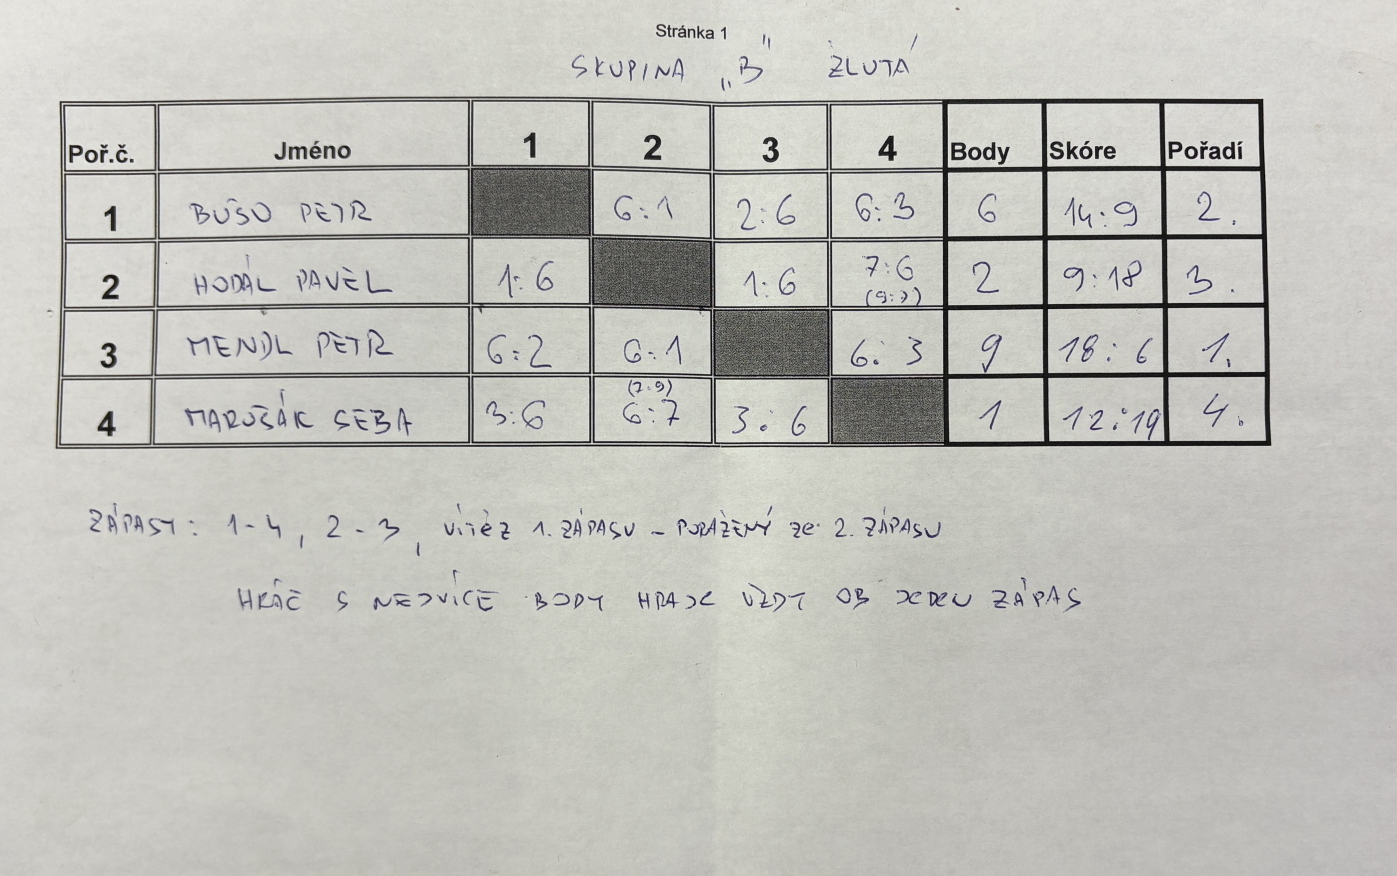 Stránka 1
SKUPINA „B" ŽLUTÁ
Poř.č. Jméno 1 2 3 4 Body Skóre Pořadí
1 BUŠO PETR 6:1 2:6 6:3 6 14:9 2.
2 HODÁL PAVEL 1:6 1:6 7:6 (9:7) 2 9:18 3.
3 MENDL PETR 6:2 6:1 6:3 9 18:6 1.
4 MARUŠÁK SEBA 3:6 (7:9) 6:7 3:6 1 12:19 4.
ZÁPASY: 1-4, 2-3, VÍTĚZ 1. ZÁPASU - PORAŽENÝ ZE 2. ZÁPASU
HRÁČ S NEJVÍCE BODY HRAJE VŽDY OB JEDEN ZÁPAS